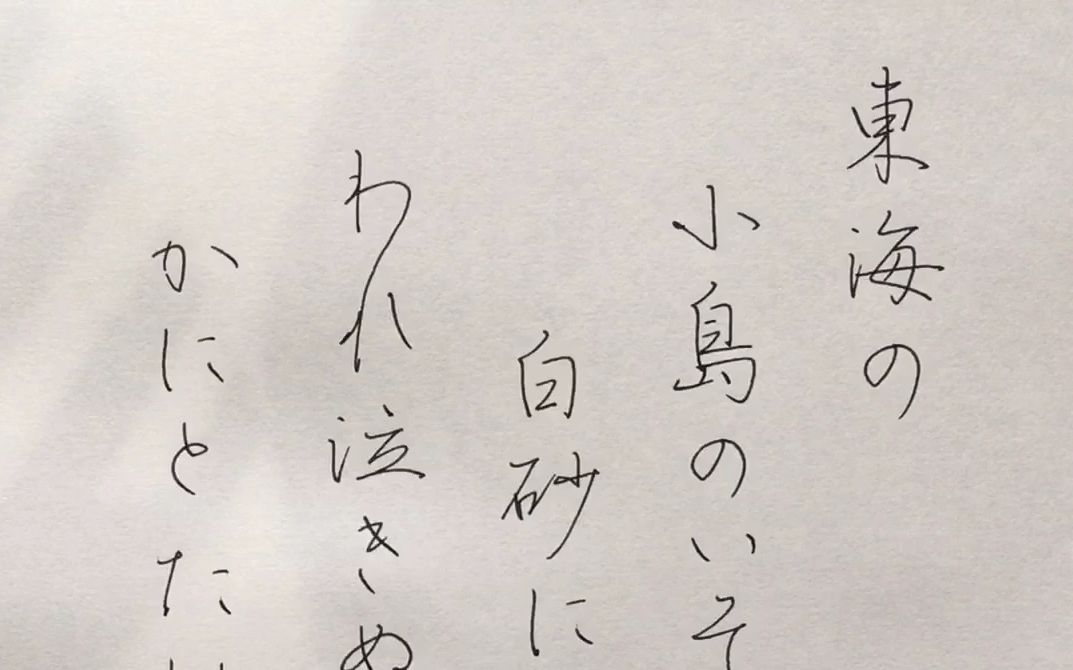 東海の
小島のいそ
白砂に
われ泣きぬ
かにとた